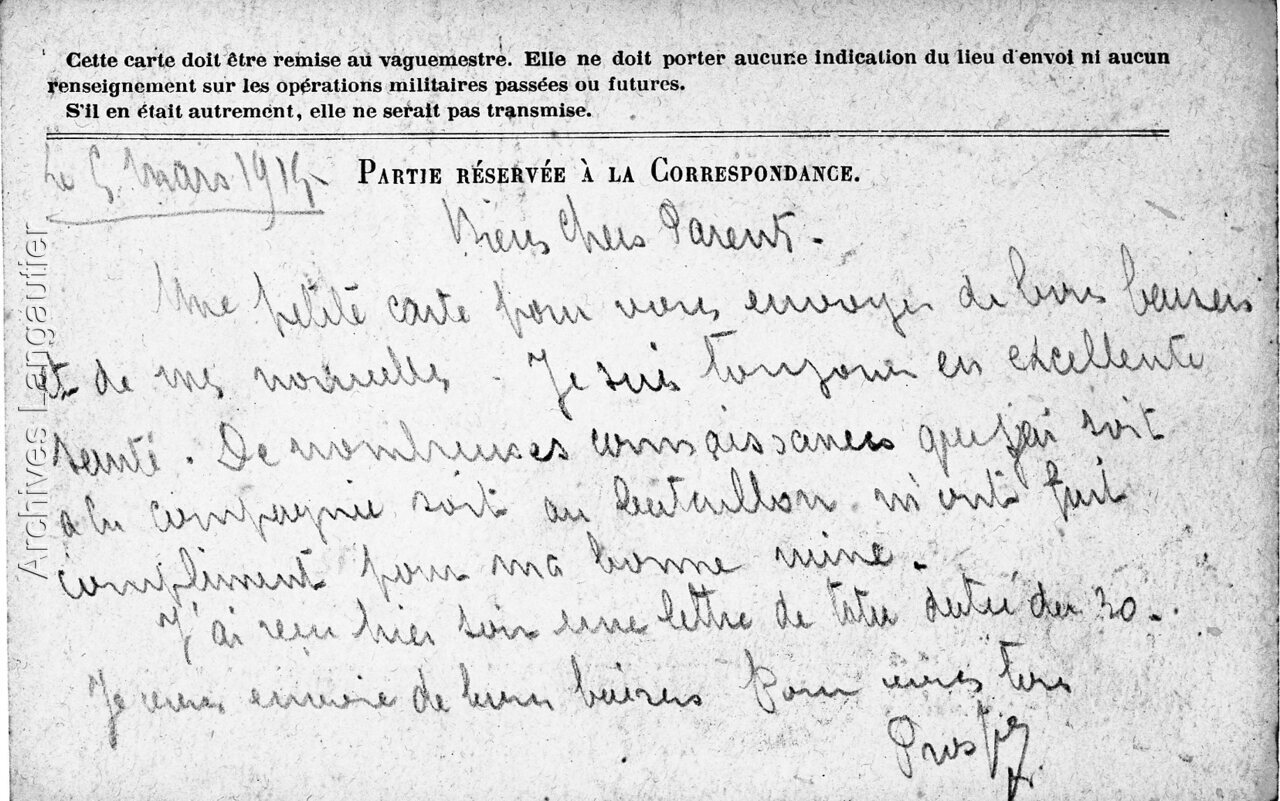 Cette carte doit être remise au vaguemestre. Elle ne doit porter aucune indication du lieu d'envoi ni aucun
renseignement sur les opérations militaires passées ou futures.
S'il en était autrement, elle ne serait pas transmise.
Le 5 Mars 1915
PARTIE RÉSERVÉE À LA CORRESPONDANCE.
Biens Chers Parents.
Une petite carte pour vous envoyer de bons baisers
et de mes nouvelles. Je suis toujours en excellente
santé. De nombreuses connaissances que j'ai soit
a la compagnie soit au bataillon m'ont fait
compliment pour ma bonne mine.
J'ai reçu hier soir une lettre de datée du 30.
Je vous envoie de bons baisers Pour vous tous
Prosper
Archives Langautier